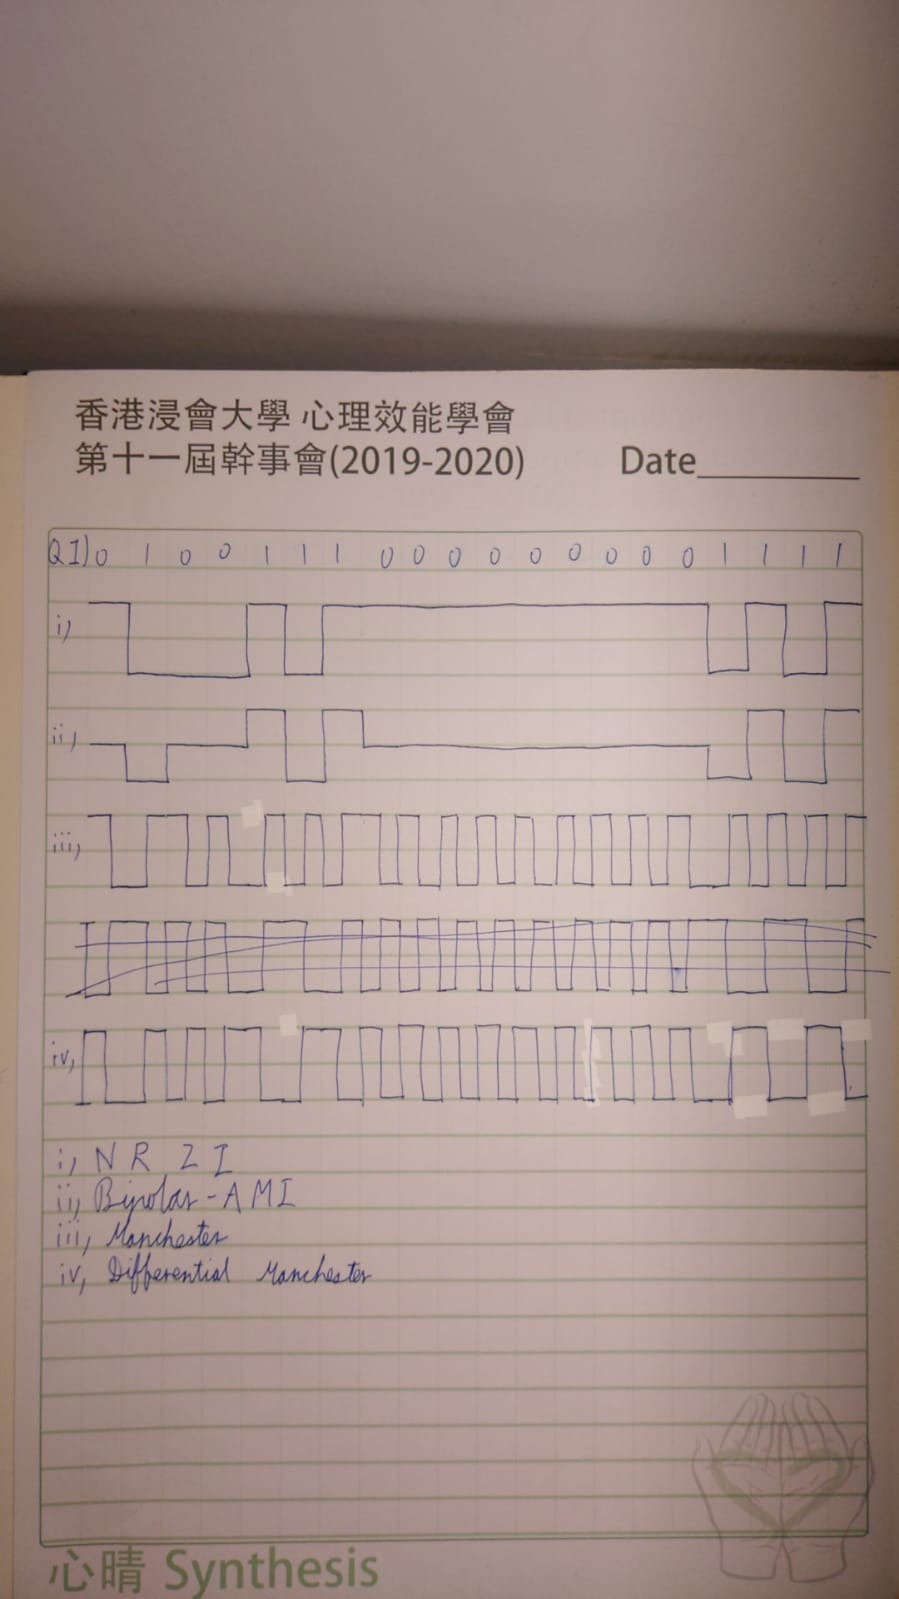 香港浸會大學 心理效能學會
第十一屆幹事會(2019-2020) Date
Q1) 0 1 0 0 1 1 1 0 0 0 0 0 0 0 0 0 1 1 1 1
i)
ii)
iii)
iv)
i) NRZI
ii) Bipolar-AMI
iii) Manchester
iv) Differential Manchester
心晴 Synthesis